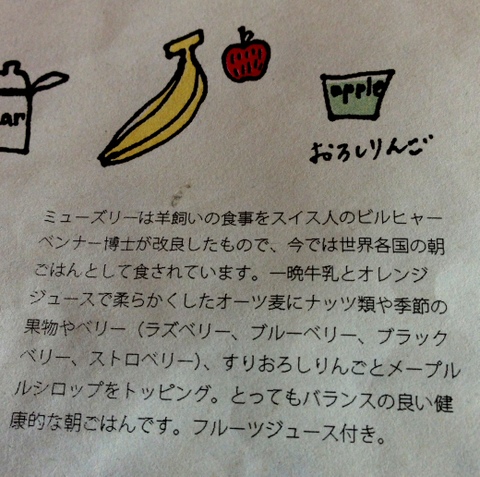 ar
apple
おろしりんご
ミューズリーは羊飼いの食事をスイス人のビルヒャー
ベンナー博士が改良したもので、今では世界各国の朝
ごはんとして食されています。一晩牛乳とオレンジ
ジュースで柔らかくしたオーツ麦にナッツ類や季節の
果物やベリー（ラズベリー、ブルーベリー、ブラック
ベリー、ストロベリー）、すりおろしりんごとメープル
ルシロップをトッピング。とってもバランスの良い健
康的な朝ごはんです。フルーツジュース付き。